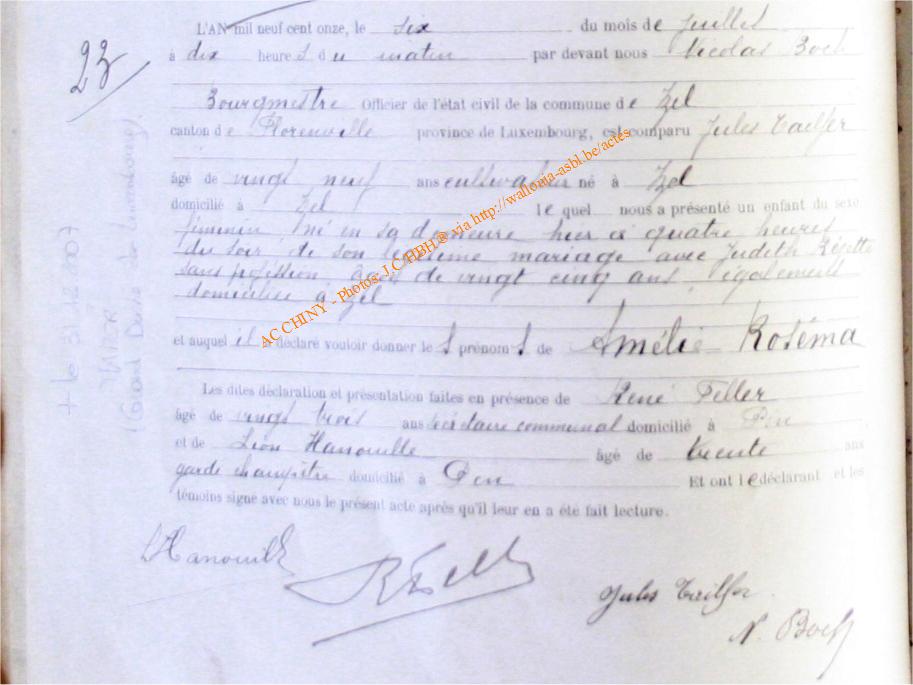 23
L'AN mil neuf cent onze, le six du mois de juillet
à dix heures du matin par devant nous Nicolas Boch
Bourgmestre Officier de l'état civil de la commune de Izel
canton de Florenville province de Luxembourg, est comparu Jules Tailfer
âgé de vingt neuf ans cultivateur né à Izel
domicilié à Izel lequel nous a présenté un enfant du sexe
féminin né en sa demeure hier à quatre heures
du soir de son légitime mariage avec Judith
sans profession âgée de vingt cinq ans également
domiciliée à Izel
et auquel il a déclaré vouloir donner les prénoms de Amélie Roséma
Les dites déclaration et présentation faites en présence de René Feller
âgé de vingt trois ans secrétaire communal domicilié à Pin
et de Léon Hanouille âgé de trente ans
garde champêtre domicilié à Pin Et ont le déclarant et les
témoins signé avec nous le présent acte après qu'il leur en a été fait lecture.
LHanouille
RFeller
Jules Tailfer
N. Boch
+ le 31.12.2007
(Grand Duché de Luxembourg).
AC CHINY - Photos J.C FBH® via http://wallonia-asbl.be/actes